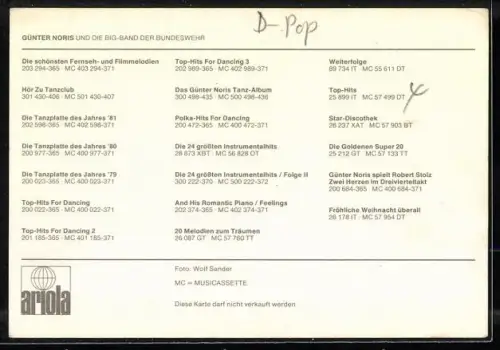 D-Pop
GÜNTER NORIS UND DIE BIG-BAND DER BUNDESWEHR
Die schönsten Fernseh- und Filmmelodien
203 294-365 · MC 403 294-371
Hör Zu Tanzclub
301 430-406 · MC 501 430-407
Die Tanzplatte des Jahres '81
202 596-365 · MC 402 596-371
Die Tanzplatte des Jahres '80
200 977-365 · MC 400 977-371
Die Tanzplatte des Jahres '79
200 023-365 · MC 400 023-371
Top-Hits For Dancing
200 022-365 · MC 400 022-371
Top-Hits For Dancing 2
201 185-365 · MC 401 185-371
Top-Hits For Dancing 3
202 989-365 · MC 402 989-371
Das Günter Noris Tanz-Album
300 498-435 · MC 500 498-436
Polka-Hits For Dancing
200 472-365 · MC 400 472-371
Die 24 größten Instrumentalhits
28 873 XBT · MC 56 828 DT
Die 24 größten Instrumentalhits / Folge II
300 222-370 · MC 500 222-372
And His Romantic Piano / Feelings
202 374-365 · MC 402 374-371
20 Melodien zum Träumen
26 087 GT · MC 57 760 TT
Welterfolge
89 734 IT · MC 55 611 DT
Top-Hits
25 899 IT · MC 57 499 DT
Star-Discothek
26 237 XAT · MC 57 903 BT
Die Goldenen Super 20
25 212 GT · MC 57 133 TT
Günter Noris spielt Robert Stolz
Zwei Herzen im Dreivierteltakt
200 684-365 · MC 400 684-371
Fröhliche Weihnacht überall
26 178 IT · MC 57 954 DT
ariola
Foto: Wolf Sander
MC = MUSICASSETTE
Diese Karte darf nicht verkauft werden